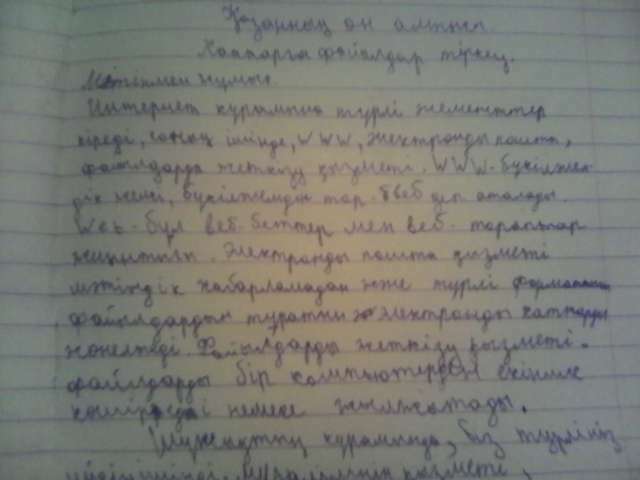 Қазанның он алтысы.
Хаттарға файлдар тіркеу.
Мәтінмен жұмыс.
Интернет құрамына түрлі элементтер
кіреді, соның ішінде, WWW, электронды пошта,
файлдарды жеткізу қызметі. WWW-бүкіләлем-
дік желі, бүкіләлемдік тор. веб деп аталады.
Web-бұл веб-беттер мен веб-тораптар
жиынтығы. Электронды пошта қызметі
мәтіндік хабарламадан және түрлі форматты
файлдардың тұратын электронды хаттарды
жөнелтеді. Файлдарды жеткізу қызметі.
файлдарды бір компьютерден екінші
көшіреді немесе жылжытады.
құрамында, біз түрлі
қызметі,